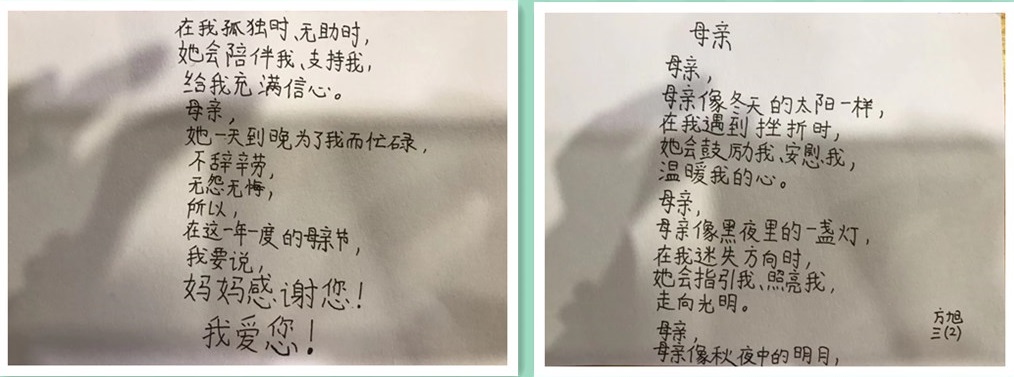 在我孤独时、无助时，
她会陪伴我、支持我，
给我充满信心。
母亲，
她一天到晚为了我而忙碌，
不辞辛劳，
无怨无悔，
所以，
在这一年一度的母亲节，
我要说，
妈妈感谢您！
我爱您！
母亲
母亲，
母亲像冬天的太阳一样，
在我遇到挫折时，
她会鼓励我、安慰我，
温暖我的心。
母亲，
母亲像黑夜里的一盏灯，
在我迷失方向时，
她会指引我、照亮我，
走向光明。
母亲，
母亲像秋夜中的明月，
方旭
三(2)